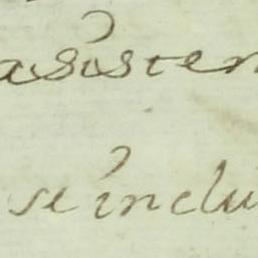 asisten
se inclui